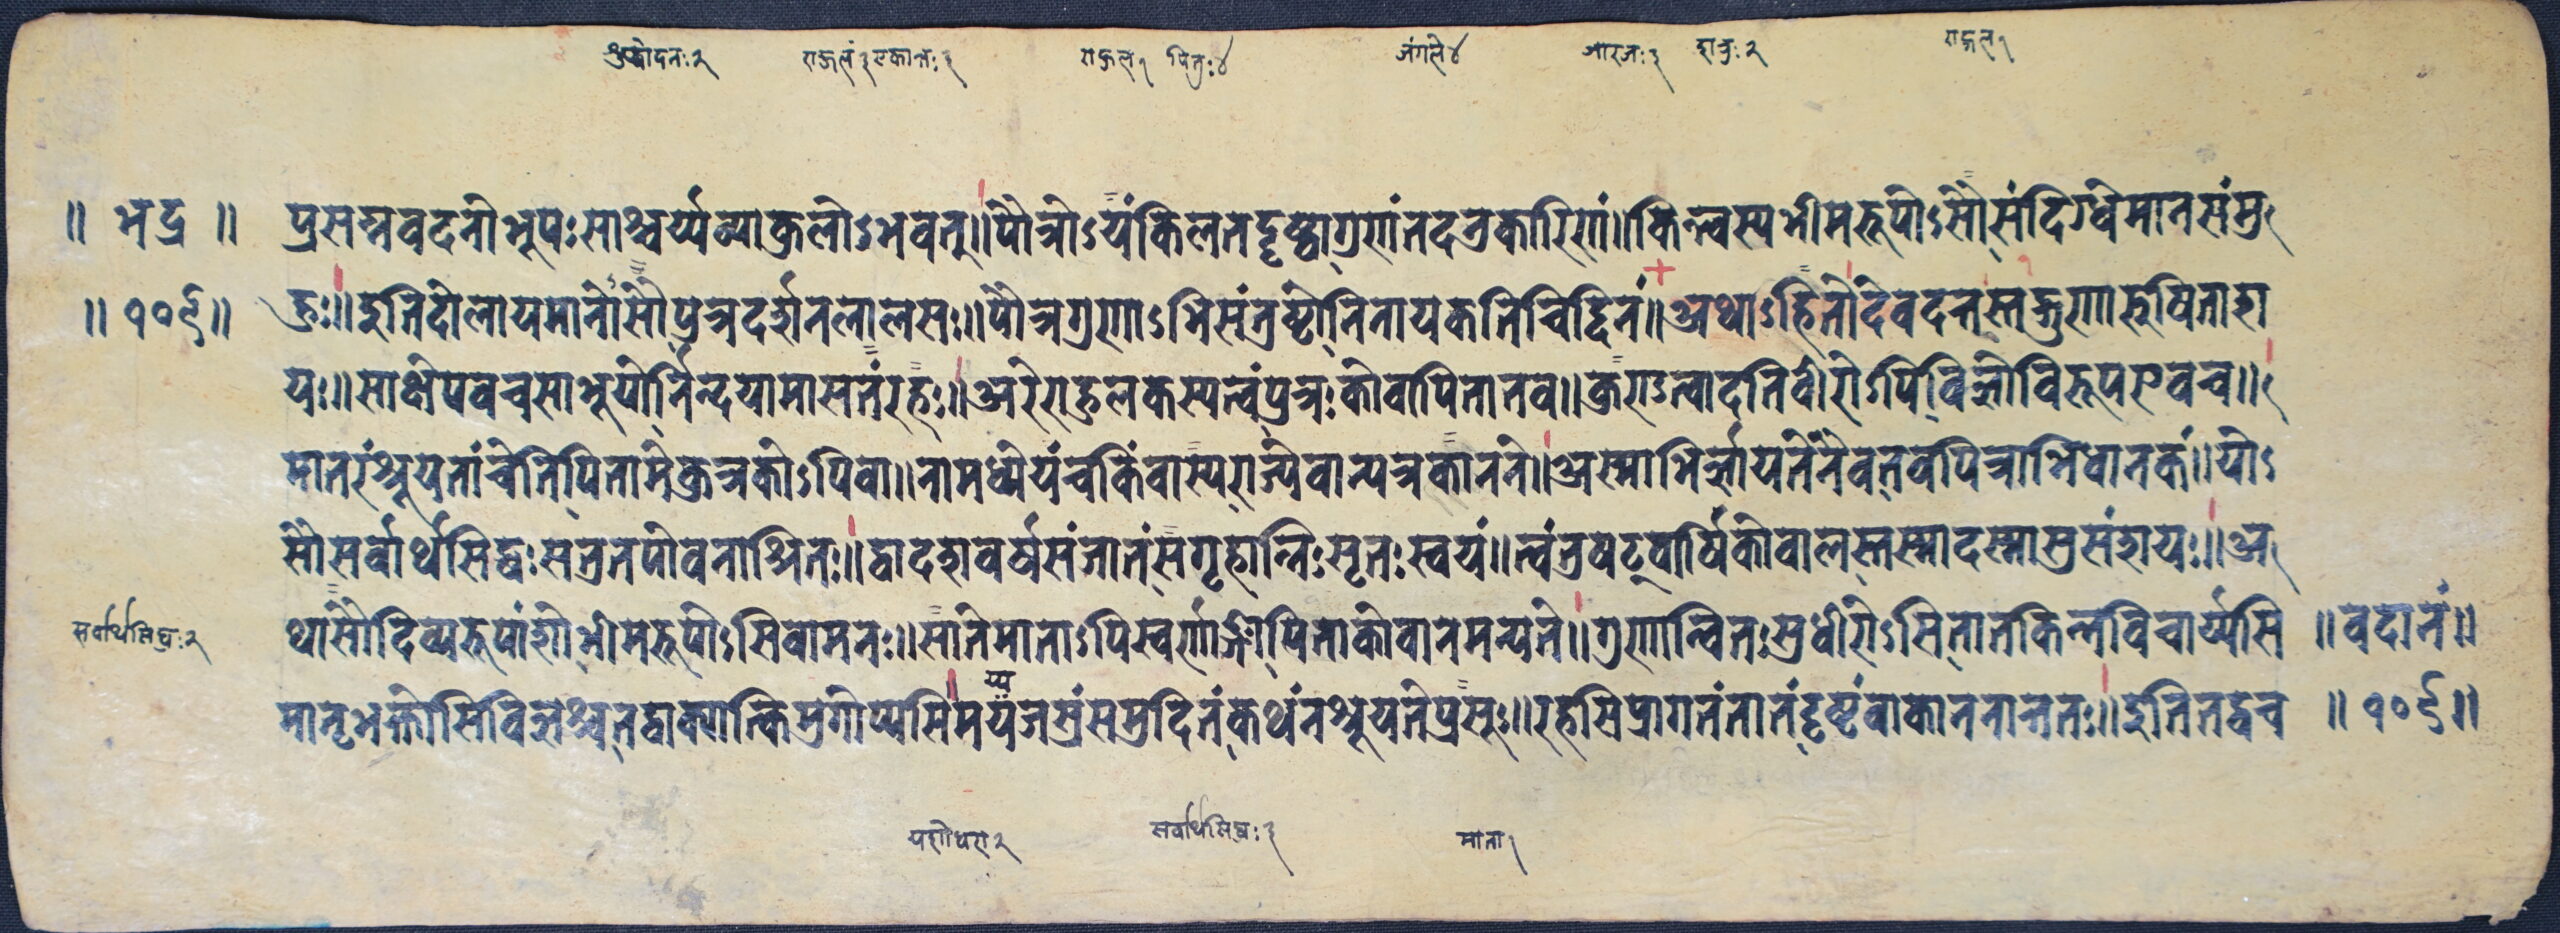 शुद्धोदनः २ राहुलं ३ एकान्तः ३ राहुल १ पितुः ४ जंगले ४ जारजः ३ हातुः २ राहुल १
॥ भद्र ॥ प्रसन्नवदनो भूपः साश्चर्य्यव्याकुलोऽभवत् ॥ पौत्रोऽयं किल तद्दृष्ट्वा गुणां तदनुकारिणां ॥ किन्त्वस्य भीमरूपोऽसौ संदिग्धे मानसं मु
॥ १०९ ॥ हुः ॥ इति दोलायमानोसौ पुत्रदर्शनलालसः ॥ पौत्रगुणाऽभिसंतुष्टो निनाय कतिचिद्दिनं ॥ अथाऽहितो देवदत्तस्तद्गुणारुषिताश
यः ॥ साक्षेपवचसा भूयो निन्दयामास तं रहः ॥ अरे राहुल कस्य त्वं पुत्रः को वा पिता तव ॥ कुराजत्वादतिवीरोऽपि विज्ञो विरूप एव च ॥
मातरं श्रूयतां चेति पिता मे कुत्र कोऽपि वा ॥ नामधेयं च किं वास्य राज्ये वान्यत्र कानने ॥ अस्माभिर्ज्ञायते नैव तव पित्राभिधानकं ॥ योऽ
सौ सर्वार्थसिद्धः स तु तपोवनाश्रितः ॥ द्वादशवर्षसंजातं स गृहान्निःसृतः स्वयं ॥ त्वं तु षट्वार्षिको वालस्तस्मादस्मासु संशयः ॥ अ
सर्वार्थसिद्धः २ थासौ दिव्यरूपांगो भीमरूपोऽसि वामनः ॥ सा ते माताऽपि स्वर्णाङ्गी पिता को वा न मन्यते ॥ गुणान्वितः सुधीरोऽसि तात किन्न विचार्य्यसि ॥ वदानं ॥
मातृभक्तोसि विज्ञश्च तद्वाक्यात्किमु गोप्यसि मय्यजस्रं समुदितं कथं न श्रूयते प्रसूः ॥ रहसि प्रागतं तातं दृष्टं वा काननान्ततः ॥ इति तद्वच ॥ १०९ ॥
यशोधरा २ सर्वार्थसिद्धः ३ माता १